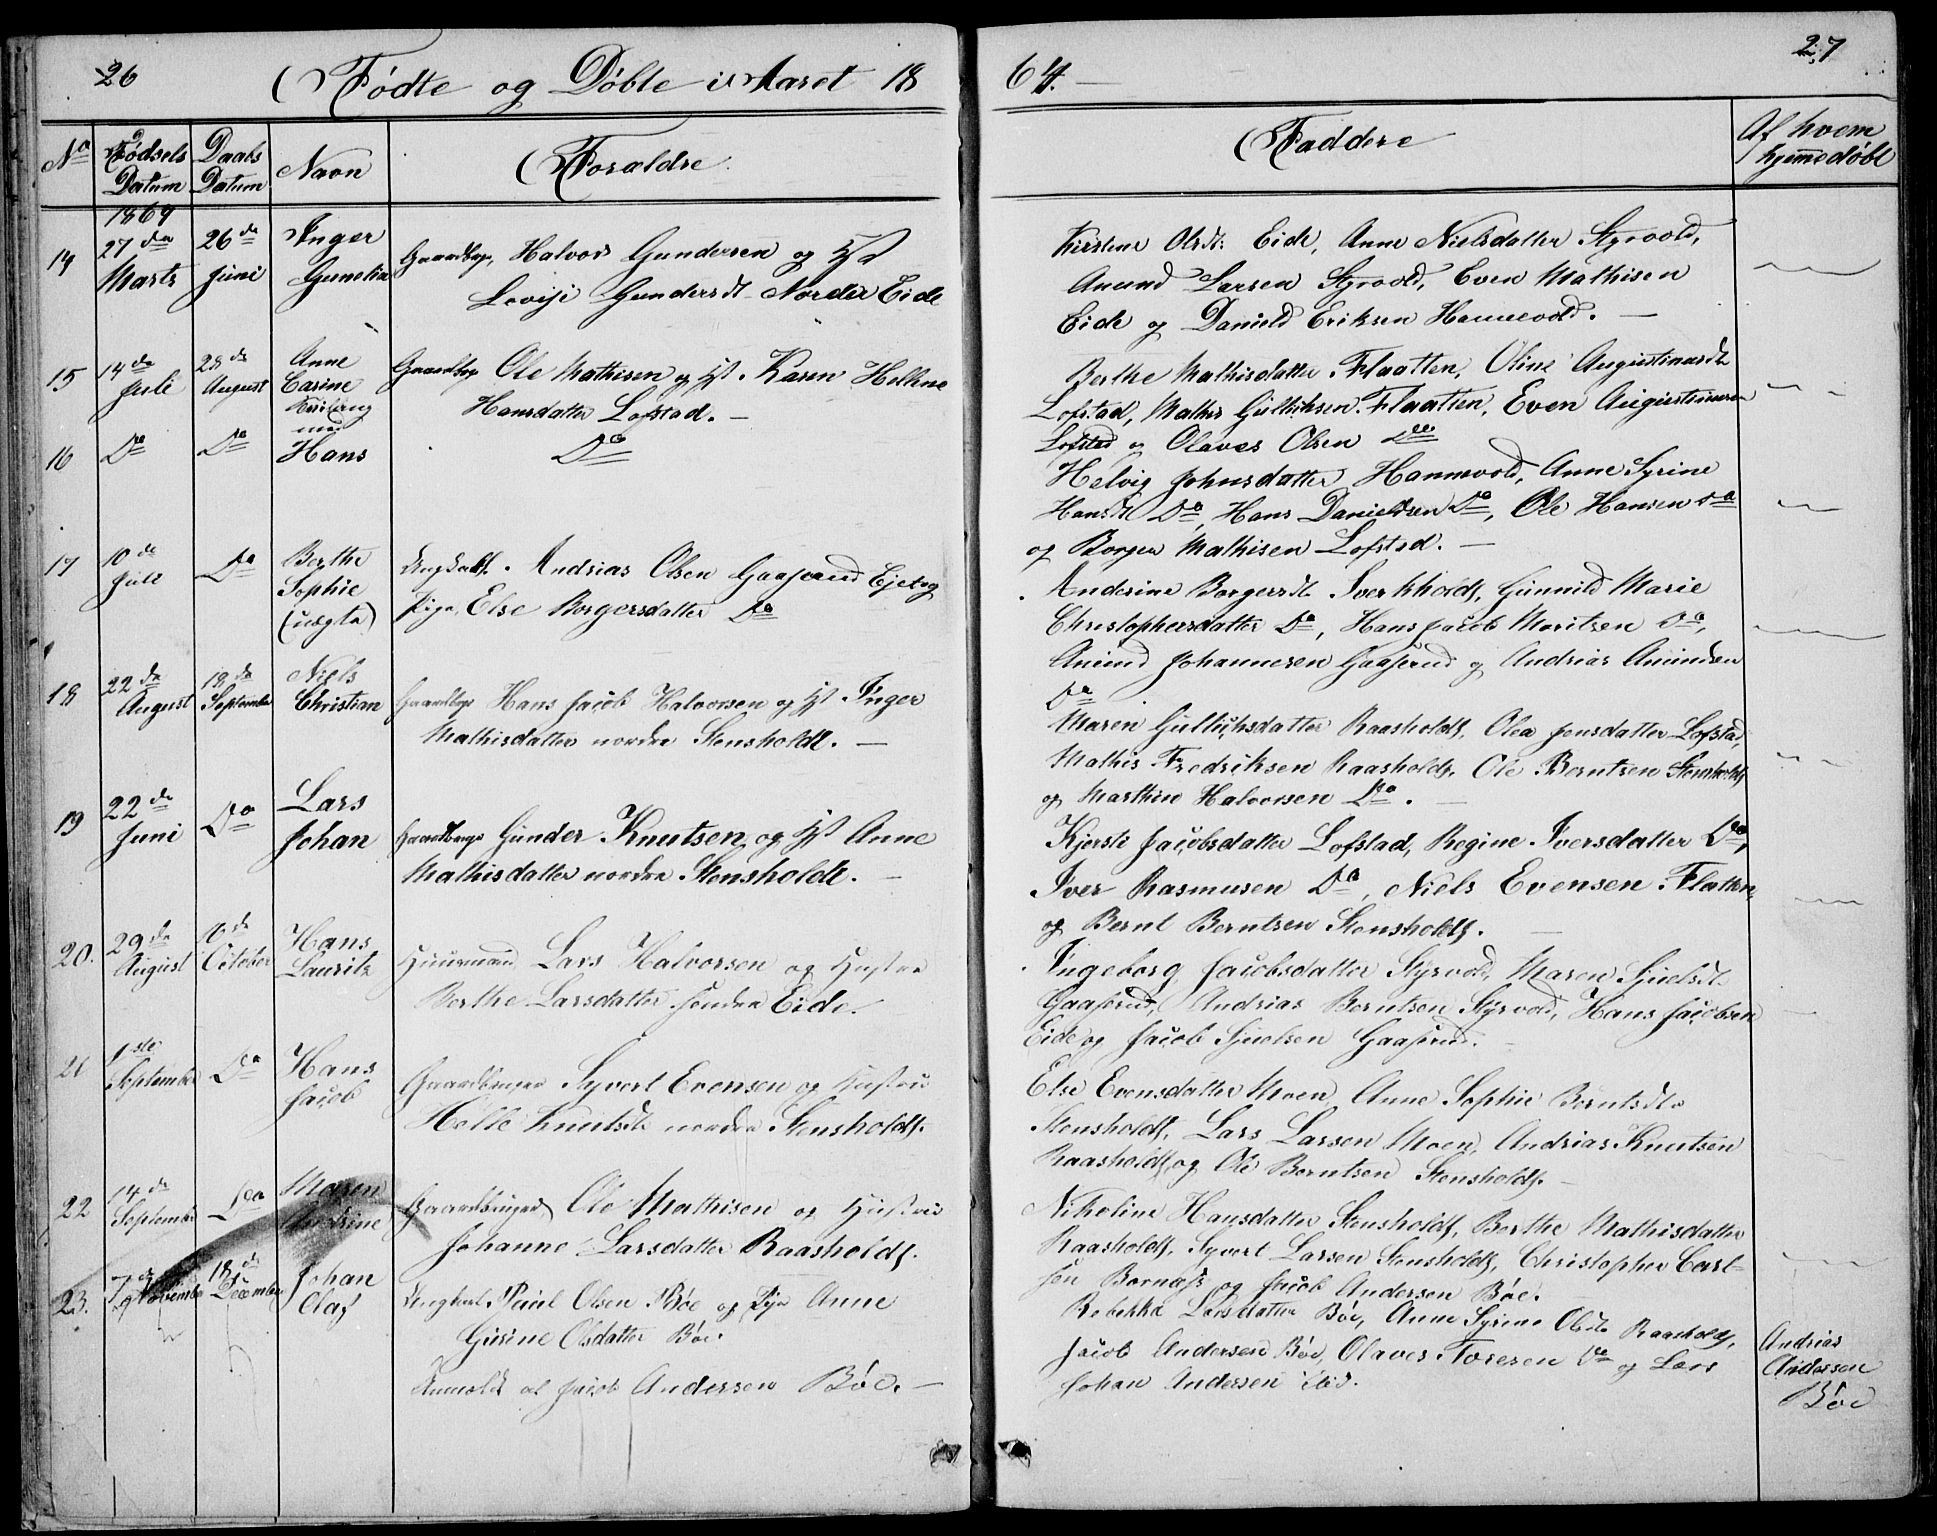 26
Fødte og Døbte i Aaret 18
64.
27
No
Fødsels Datum
Daabs Datum
Navn
Forældre
Faddere
Af hvem hjemmedøbt
1864
14
27de Marts
26de Juni
Inger Gunelia
Gaardbrg. Halvor Gundersen og Hst
Lovise Gundersdt. Nordre Eide
Kirstine Olsdt. Eide, Anne Nielsdatter Styrvold,
Amund Larsen Styrvold, Even Mathisen
Eide og Daniel Eriksen Hannevold. —
15
14de Juli
28de August
Anne Carine
Gaardbrg Ole Mathisen og Hst. Karen Helene
Hansdatter Lofstad. —
Berthe Mathisdatter Flaatten, Oline Augustinusdt
Lofstad, Mathis Gulliksen Flaatten, Even Augustinusen
Lofstad og Olaves Olsen Do
16
Do
Do
Tvilling med
Hans
Do
Helvig Johnsdatter Hannevold, Anne Syrine
Hansdt Do, Hans Danielsen Do, Ole Hansen Do
og Borger Mathisen Lofstad. —
17
10de Juli
Do
Berthe Sophie (uægte)
Ungkarl. Andrias Olsen Gaaserud Eje og
Pige Else Borgersdatter Do
Anderine Borgersdt. Sverkholdt, Gunnild Marie
Christophersdatter Do, Hans Jacob Moritsen Do,
Amund Johannesen Gaaserud og Andrias Amundsen
Do
18
22de August
18de September
Niels Christian
Gaardbrg Hans Jacob Halvorsen og Hst Inger
Mathisdatter nordre Stensholdt. —
Maren Gullichsdatter Raasholdt, Olea Jensdatter Lofstad,
Mathis Fredriksen Raasholdt, Ole Berntsen Stensholdt
og Marthin Halvorsen Do. —
19
22de Juni
Do
Lars Johan
Gaardbrg Gunder Knutsen og Hst Anne
Mathisdatter nordre Stensholdt. —
Kjersti Jacobsdatter Lofstad, Regine Iversdatter Do,
Iver Rasmusen Do, Niels Evensen Flatten,
og Bernt Berntsen Stensholdt. —
20.
29de August
16de October
Hans Lauritz
Huusmand Lars Halvorsen og Hustru
Berthe Larsdatter søndre Eide.
Ingeborg Jacobsdatter Styrvold, Maren Sjuelsdt.
Gaaserud, Andrias Berntsen Styrvold, Hans Jacobsen
Eide og Jacob Sjuelsen Gaaserud. —
21
1ste September
Do
Hans Jacob
Gaardbruger Syvert Evensen og Hustru
Helle Knutsdt nordre Stensholdt.
Else Evensdatter Moen, Anne Sophie Berntsdt.
Stensholdt, Lars Larsen Moen, Andrias Knutsen
Raasholdt og Ole Berntsen Stensholdt. —
22
14de September
Do
Maren Andrine
Gaardbruger Ole Mathisen og Hustru
Johanne Larsdatter Raasholdt.
Nikoline Hansdatter Stensholdt, Berthe Mathisdatter
Raasholdt, Syvert Larsen Stensholdt, Christopher Carl-
sen Bornass og Jacob Andersen Bøe.
23.
7de November
18de December
Johan Olaf
Ungkarl Paul Olsen Bøe og Pige Anne
Gurine Olsdatter Bøe.
Anmeldt af Jacob Andersen Bøe. —
Rebekka Larsdatter Bøe, Anne Syrine Olsdt. Raasholdt,
Jacob Andersen Bøe, Olaves Toresen Do og Lars
Johan Andersen ibid.
Andrias
Andersen
Bøe